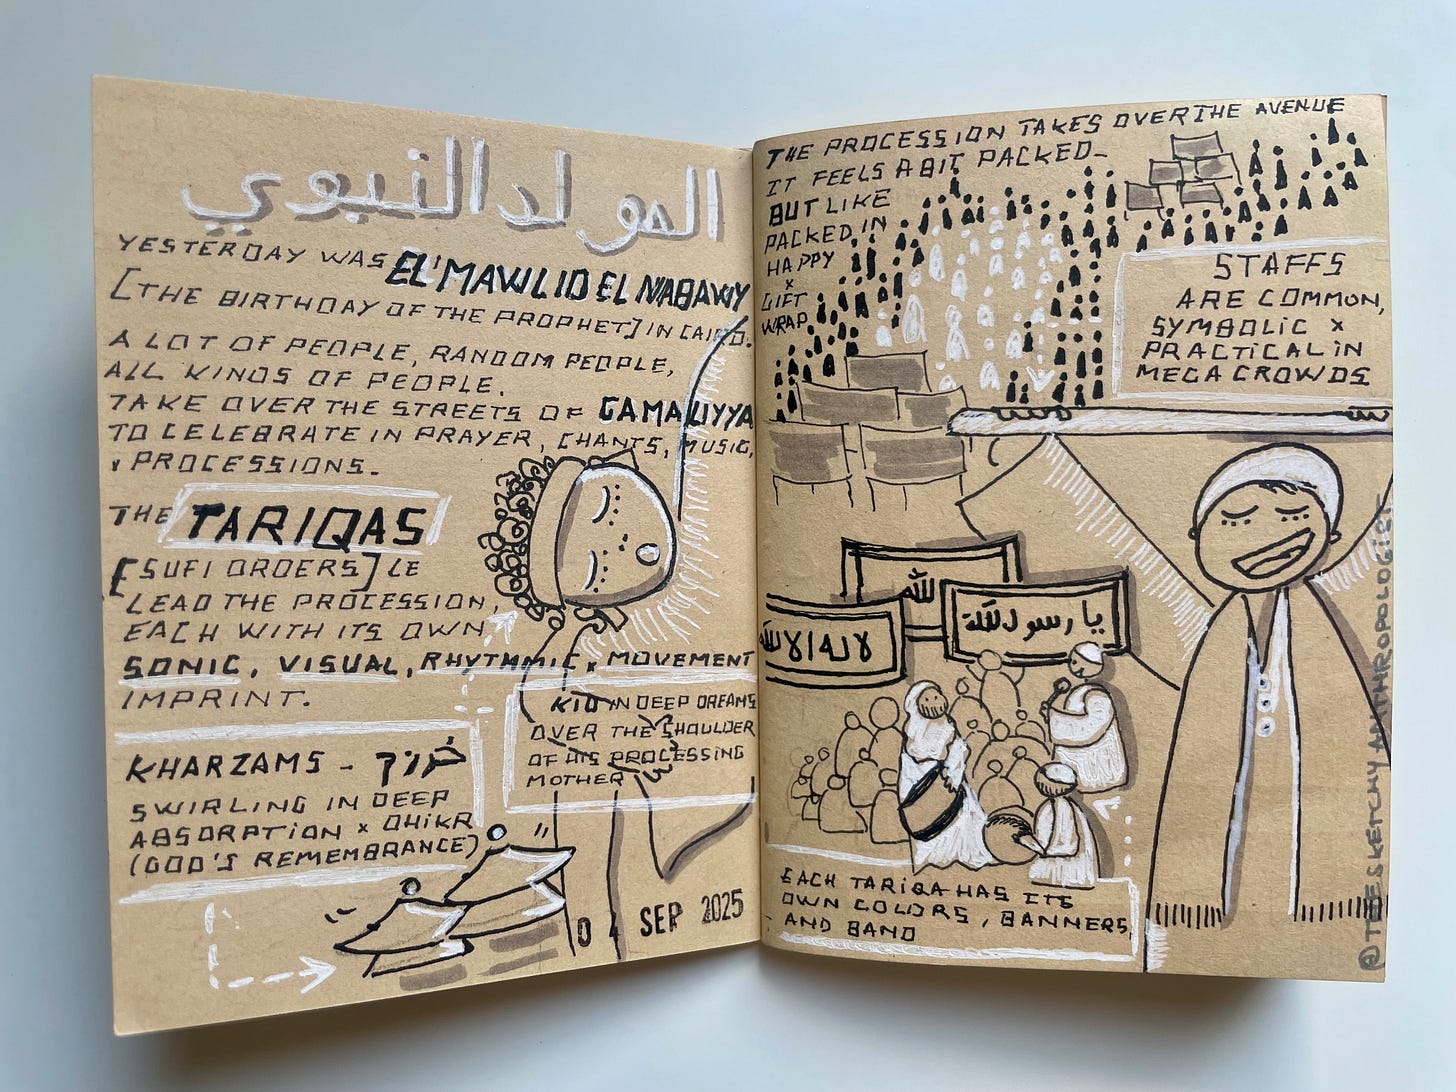 المولد النبوي
YESTERDAY WAS EL'MAWLID EL NABAWY
[THE BIRTHDAY OF THE PROPHET] IN CAIRO.
A LOT OF PEOPLE, RANDOM PEOPLE,
ALL KINDS OF PEOPLE.
TAKE OVER THE STREETS OF GAMALIYYA
TO CELEBRATE IN PRAYER, CHANTS, MUSIC,
x PROCESSIONS.
THE TARIQAS
[SUFI ORDERS] LE
LEAD THE PROCESSION,
EACH WITH ITS OWN
SONIC, VISUAL, RHYTHMIC x MOVEMENT
IMPRINT.
KHARZAMS -
SWIRLING IN DEEP
ABSORPTION x DHIKR
(GOD'S REMEMBRANCE)
KID IN DEEP DREAMS
OVER THE SHOULDER
OF HIS PROCESSING
MOTHER
04 SEP 2025
THE PROCESSION TAKES OVER THE AVENUE
IT FEELS A BIT PACKED-
BUT LIKE
PACKED IN
HAPPY
x
GIFT
WRAP
STAFFS
ARE COMMON,
SYMBOLIC x
PRACTICAL IN
MEGA CROWDS
لله
يا رسول لله
لا له الا لله
EACH TARIQA HAS ITS
OWN COLORS, BANNERS,
AND BAND
@TEESKETCHY ANTHROPOLOGIST